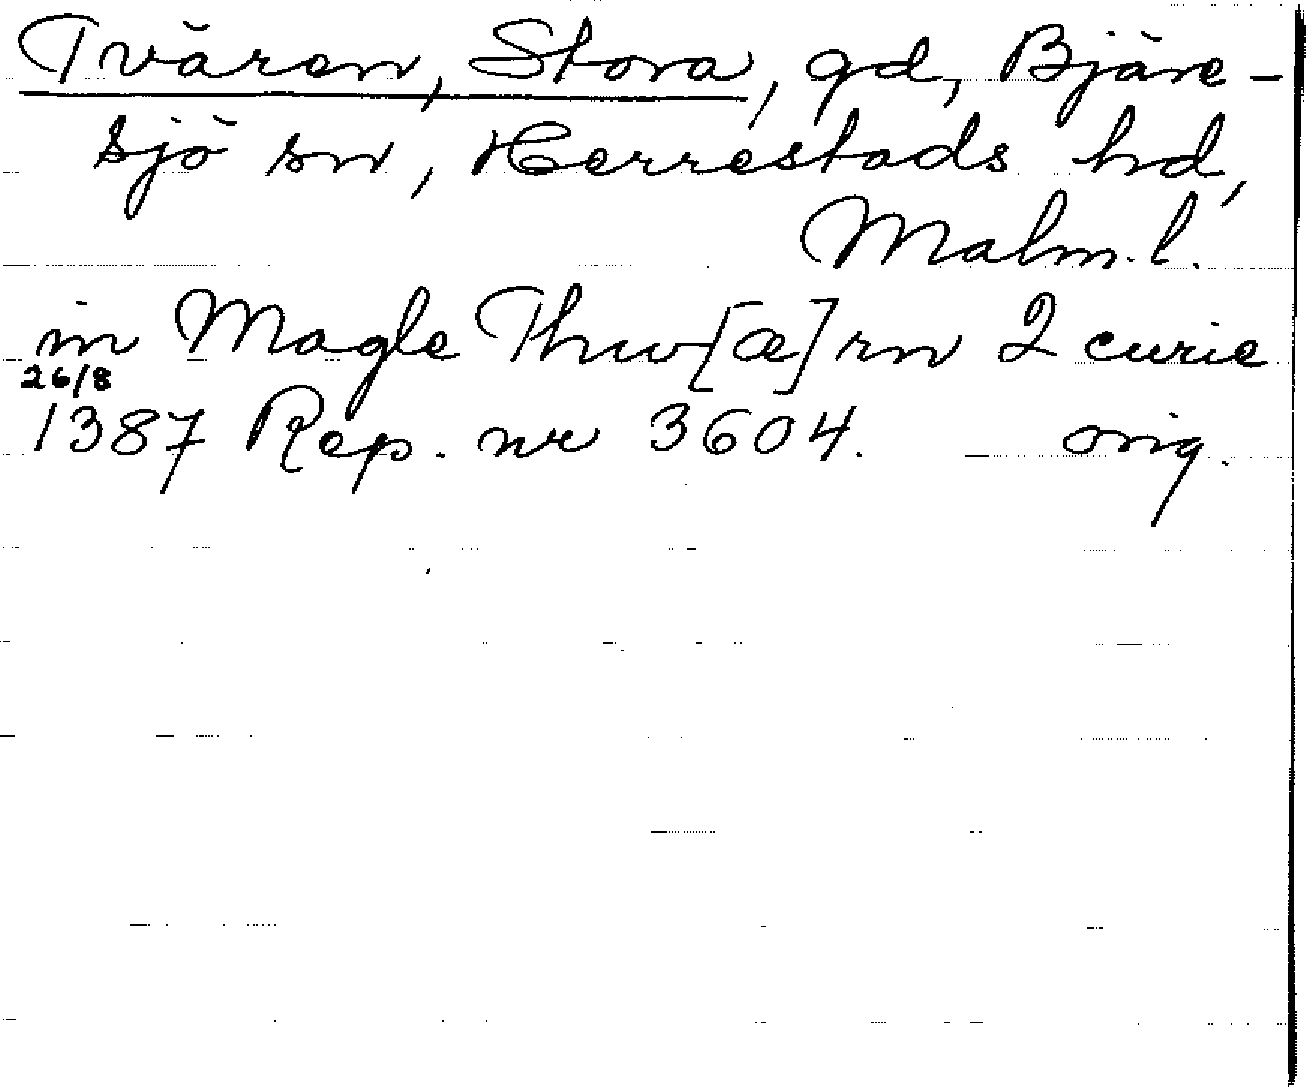 Tvären, Stora, gd, Bjäre-
sjö sn, Herrestads hd,
Malm. l.
in Magle Thuu[æ]rn 2 curie
26/8
1387 Rep. nr 3604. orig.